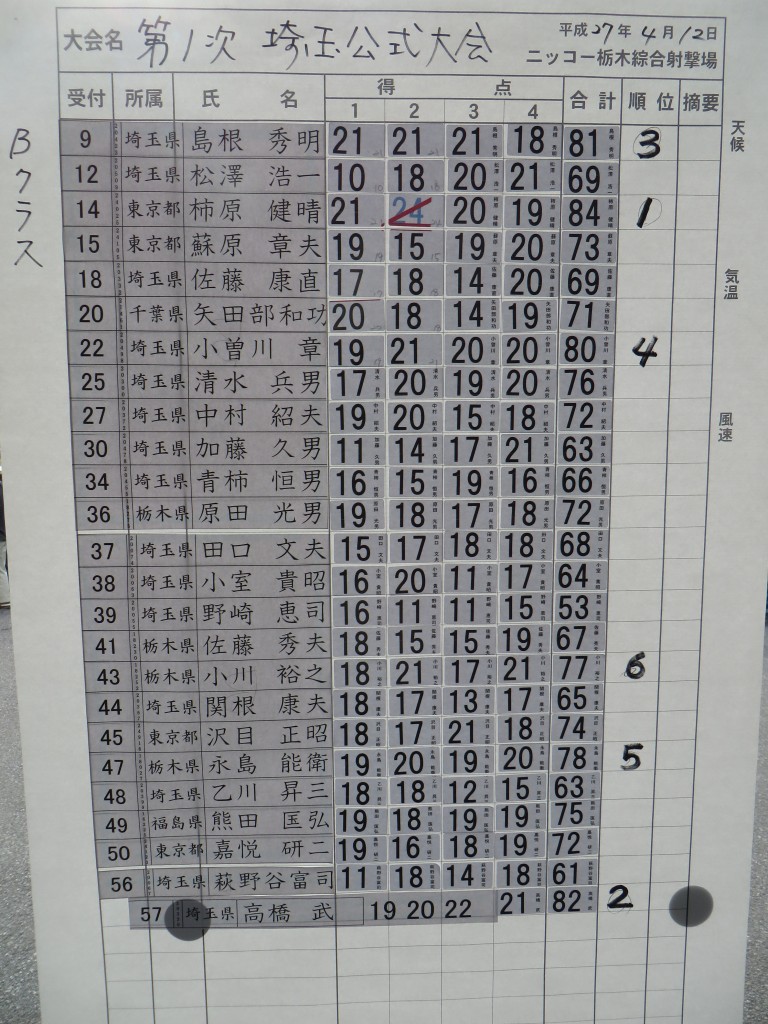 大会名 第1次 埼玉公式大会
平成27年4月12日
ニッコー栃木綜合射撃場
受付 所属 氏 名 得 点 合計 順位 摘要
1 2 3 4
Bクラス
天候
気温
風速
9 埼玉県 島根 秀明 21 21 21 18 81 3
12 埼玉県 松澤 浩一 10 18 20 21 69
14 東京都 柿原 健晴 21 24 20 19 84 1
15 東京都 蘇原 章夫 19 15 19 20 73
18 埼玉県 佐藤 康直 17 18 14 20 69
20 千葉県 矢田部和功 20 18 14 19 71
22 埼玉県 小曽川 章 19 21 20 20 80 4
25 埼玉県 清水 兵男 17 20 19 20 76
27 埼玉県 中村 紹夫 19 20 15 18 72
30 埼玉県 加藤 久男 11 14 17 21 63
34 埼玉県 青柿 恒男 16 15 19 16 66
36 栃木県 原田 光男 19 18 17 18 72
37 埼玉県 田口 文夫 15 17 18 18 68
38 埼玉県 小室 貴昭 16 20 11 17 64
39 埼玉県 野崎 恵司 16 11 11 15 53
41 栃木県 佐藤 秀夫 18 15 15 19 67
43 栃木県 小川 裕之 18 21 17 21 77 6
44 埼玉県 関根 康夫 18 17 13 17 65
45 東京都 沢目 正昭 18 17 21 18 74
47 栃木県 永島 能衛 19 20 19 20 78 5
48 埼玉県 乙川 昇三 18 18 12 15 63
49 福島県 熊田 匡弘 19 18 19 19 75
50 東京都 嘉悦 研二 19 16 18 19 72
56 埼玉県 萩野谷富司 11 18 14 18 61
57 埼玉県 高橋 武 19 20 22 21 82 2